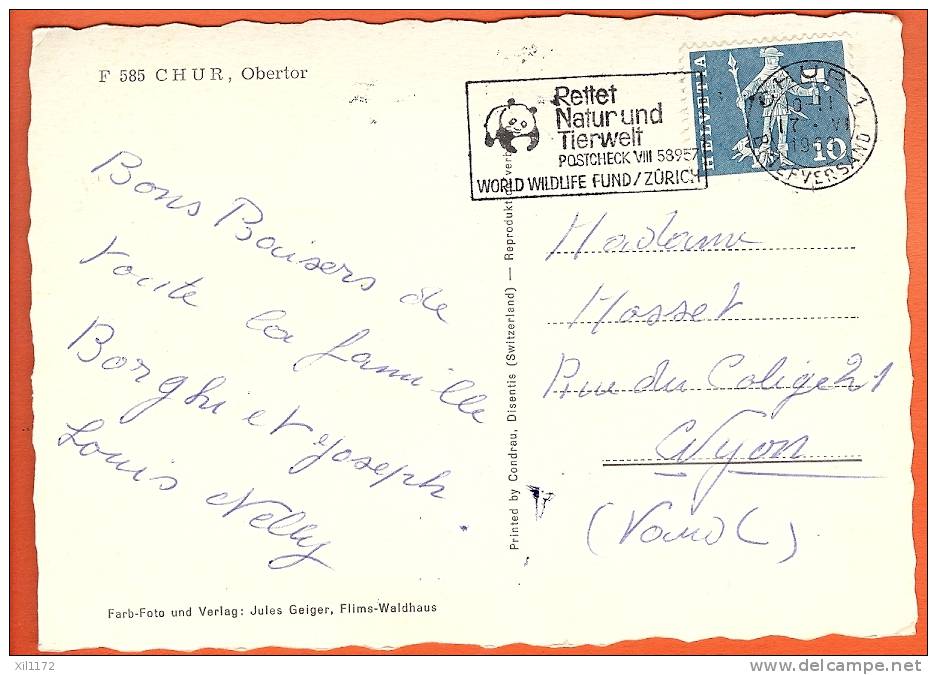 F 585 CHUR, Obertor
Bons Baisers de
toute la famille
Borghi et Joseph.
Louis Nelly
Farb-Foto und Verlag: Jules Geiger, Flims-Waldhaus
Printed by Condrau, Disentis (Switzerland) — Reproduktion verb
Rettet
Natur und
Tierwelt
POSTCHECK VIII 58957
WORLD WILDLIFE FUND/ZÜRICH
HELVETIA
10
CHUR 1
17. VI
BRIEFVERSAND
Madame
Mosset
Rue du Colège 21
Nyon
(Vaud)
xil1172
delcampe.net